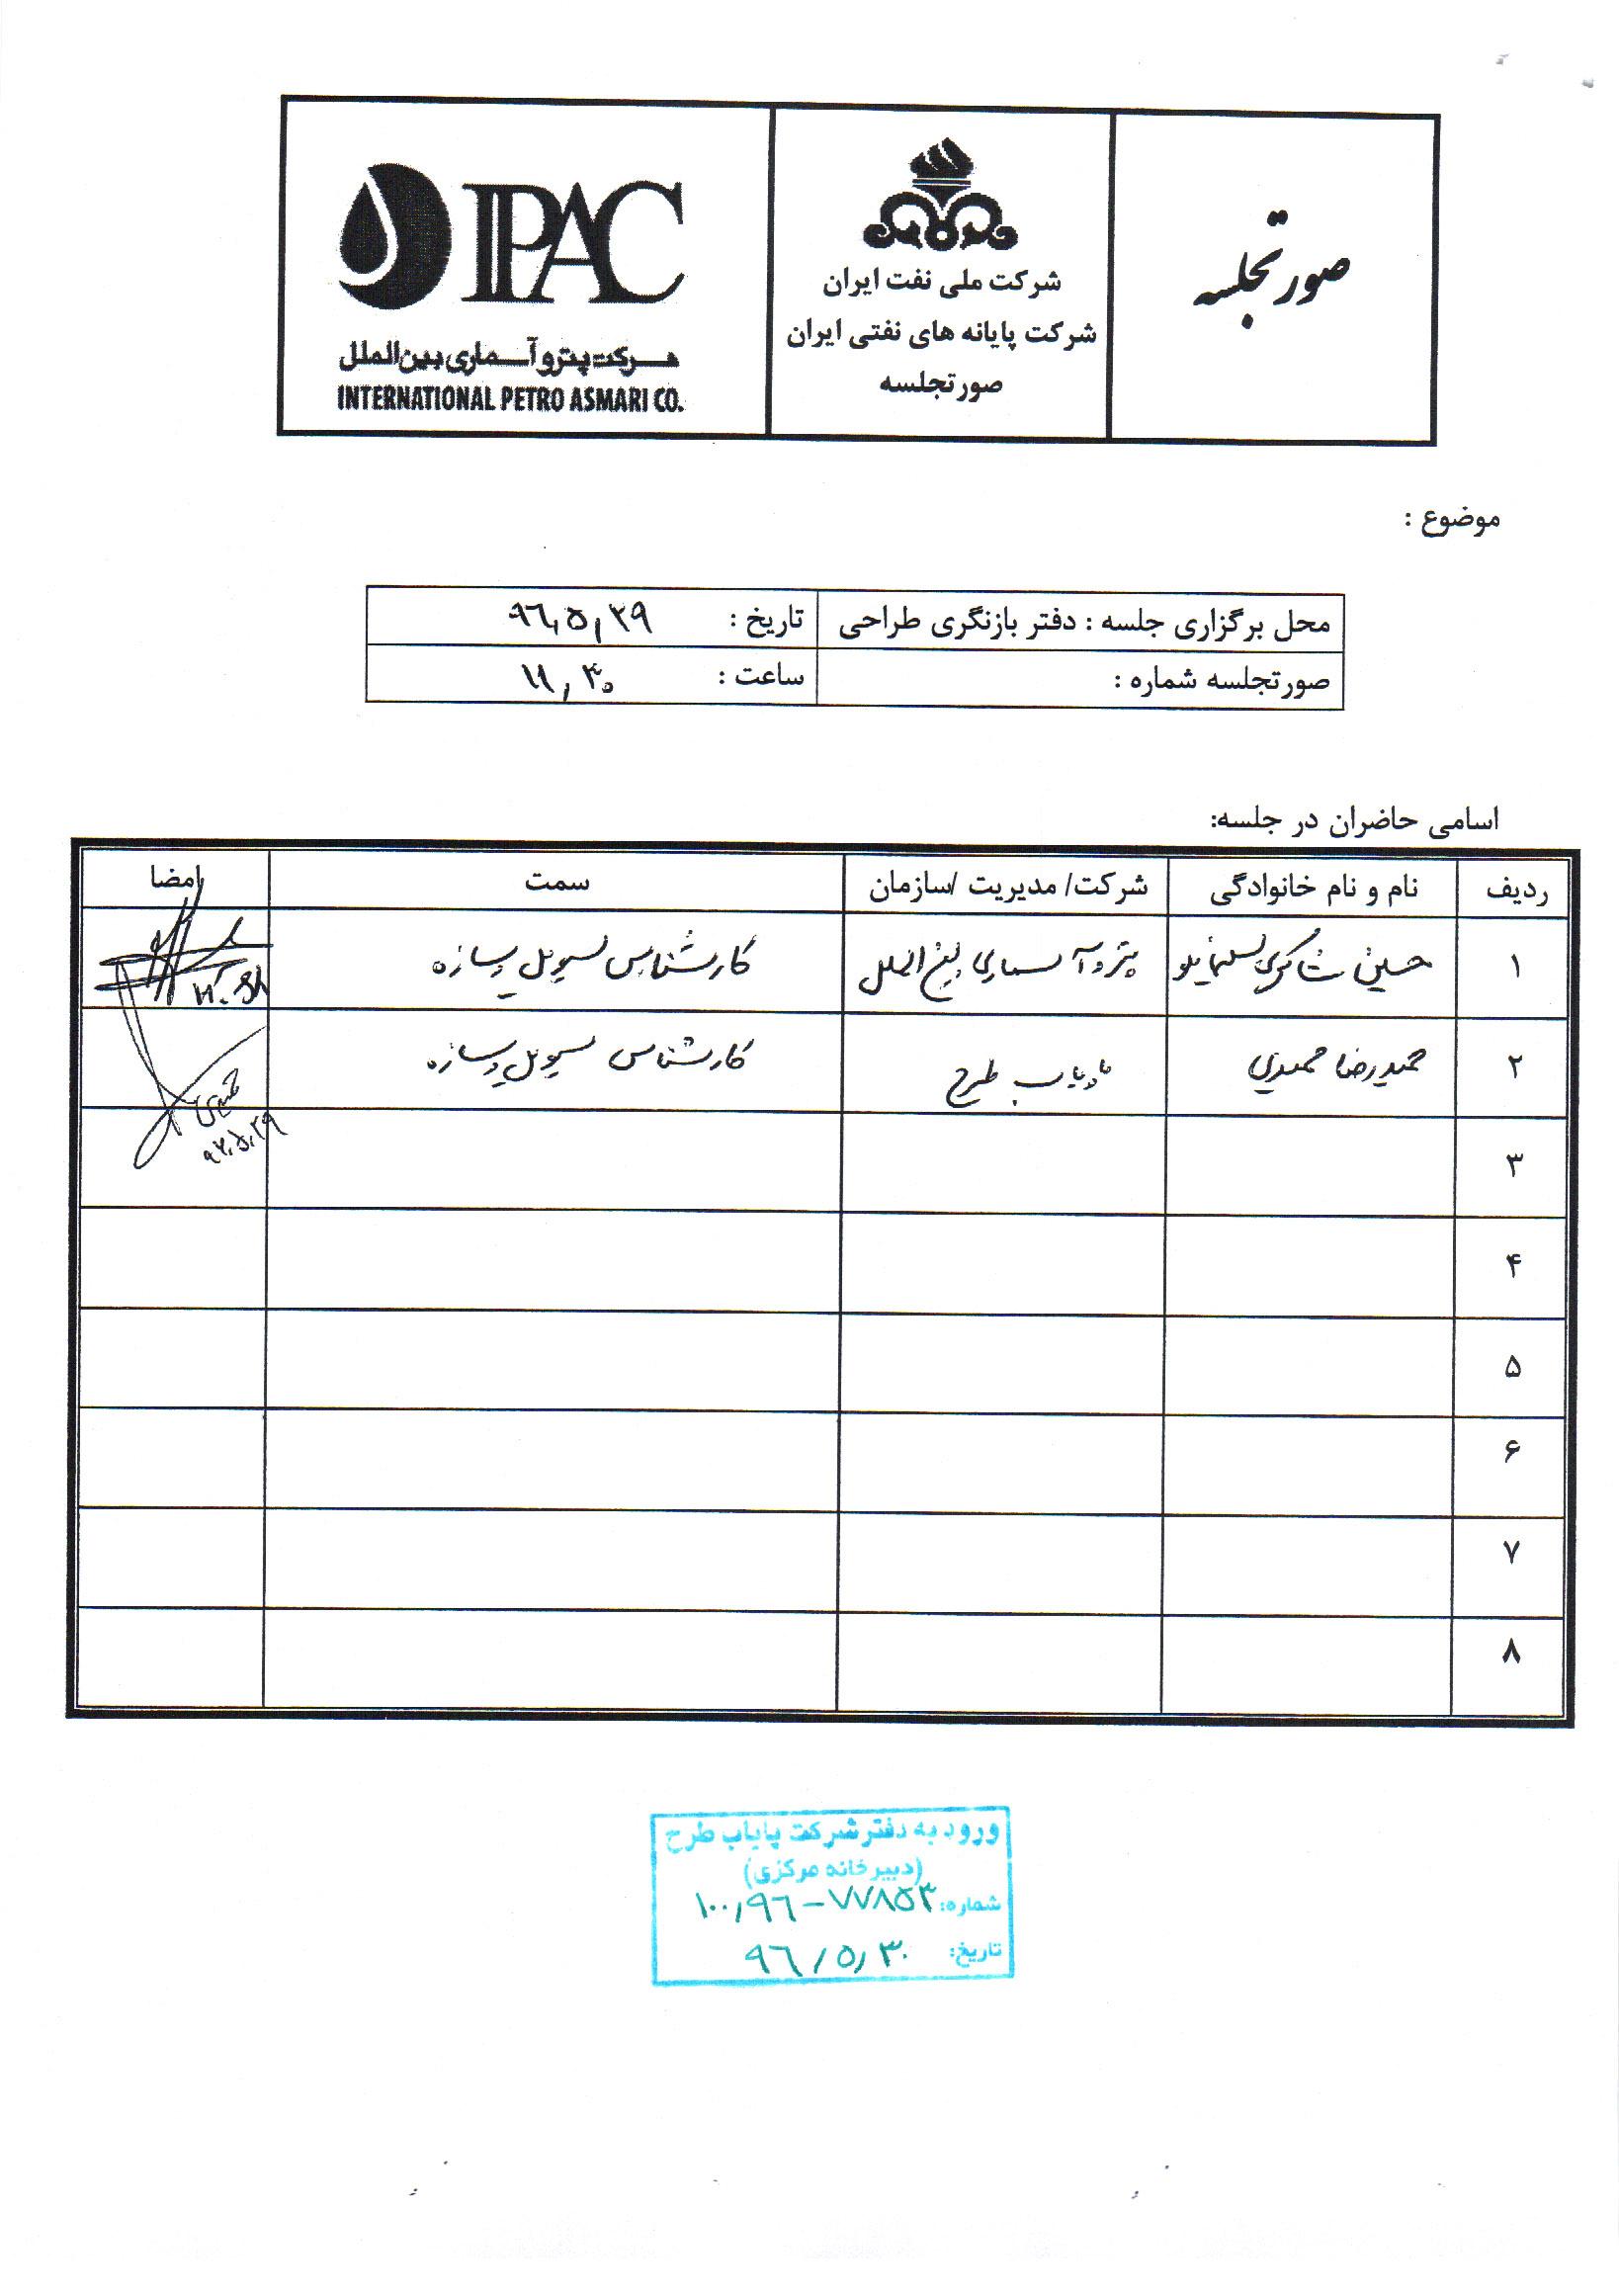 صورتجلسه
شرکت ملی نفت ایران
شرکت پایانه های نفتی ایران
صورتجلسه
IPAC
شرکت پترو آسماری بین الملل
INTERNATIONAL PETRO ASMARI CO.
موضوع :
محل برگزاری جلسه : دفتر بازنگری طراحی تاریخ : ۹۶,۵,۲۹
صورتجلسه شماره : ساعت : ۱۱,۳۰
اسامی حاضران در جلسه:
ردیف نام و نام خانوادگی شرکت/ مدیریت /سازمان سمت امضا
۱ حسین شاکری سلیمانیلو پترو آسماری بین الملل کارشناس سیویل و سازه H.Sh
۲ حمیدرضا حمیدی پایاب طرح کارشناس سیویل و سازه
۹۶,۵,۲۹
۳
۴
۵
۶
۷
۸
ورود به دفتر شرکت پایاب طرح
(دبیرخانه مرکزی)
شماره: ۱۰۰,۹۶-۷۷۸۵۳
تاریخ: ۹۶/۵/۳۰